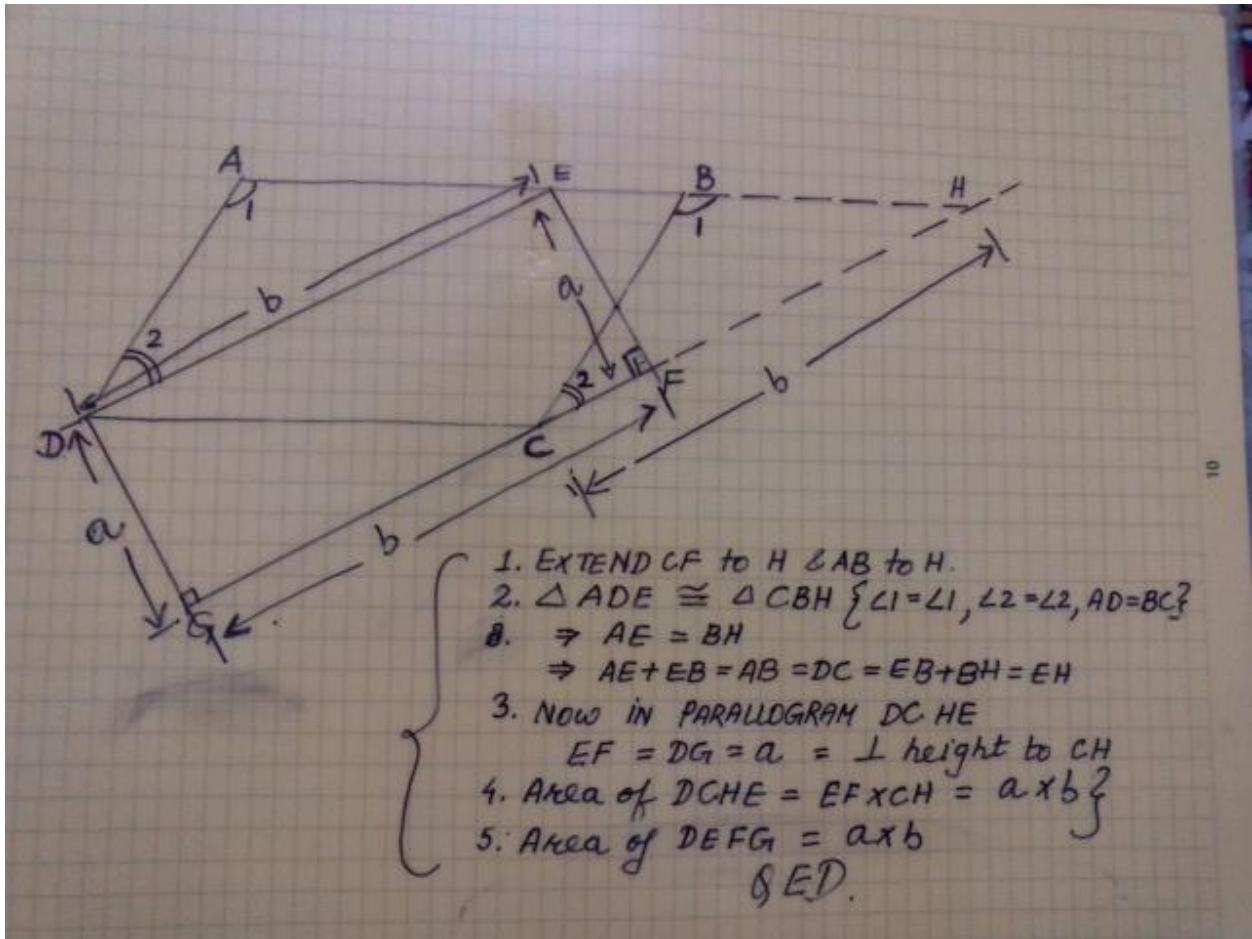 A
E
B
H
1
1
b
a
2
2
F
b
D
C
a
b
G
10
1. EXTEND CF to H & AB to H.
2. △ ADE ≅ △ CBH {∠1=∠1, ∠2=∠2, AD=BC}
⇒ AE = BH
⇒ AE+EB = AB = DC = EB+BH = EH
3. NOW IN PARALLOGRAM DCHE
EF = DG = a = ⊥ height to CH
4. Area of DCHE = EF×CH = a×b}
5. Area of DEFG = a×b
QED.